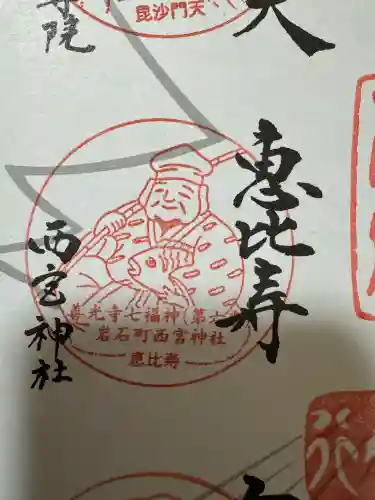 毘沙門天
天
寺院
恵比寿
西宮神社
善光寺七福神 第六
岩石町西宮神社
恵比寿